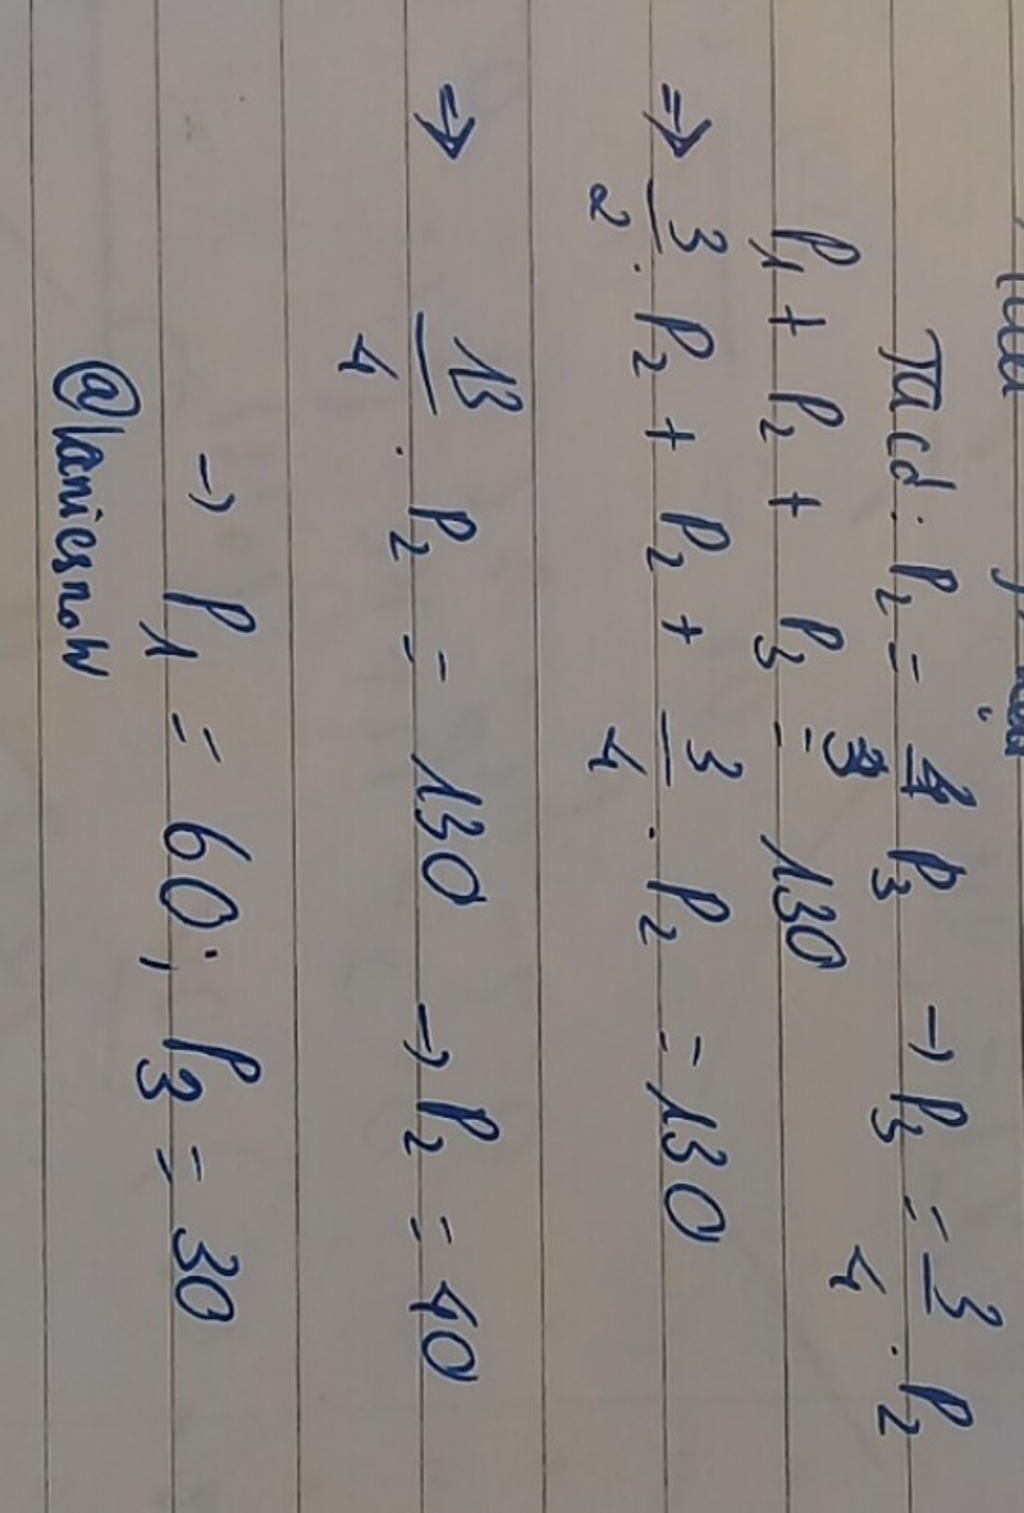 Ta có: P₂ = 4/3 P₃ → P₃ = 3/4 . P₂
P₁ + P₂ + P₃ = 130
⇒ 3/2 . P₂ + P₂ + 3/4 . P₂ = 130
⇒ 13/4 . P₂ = 130 → P₂ = 40
→ P₁ = 60 ; P₃ = 30
@laniesnow